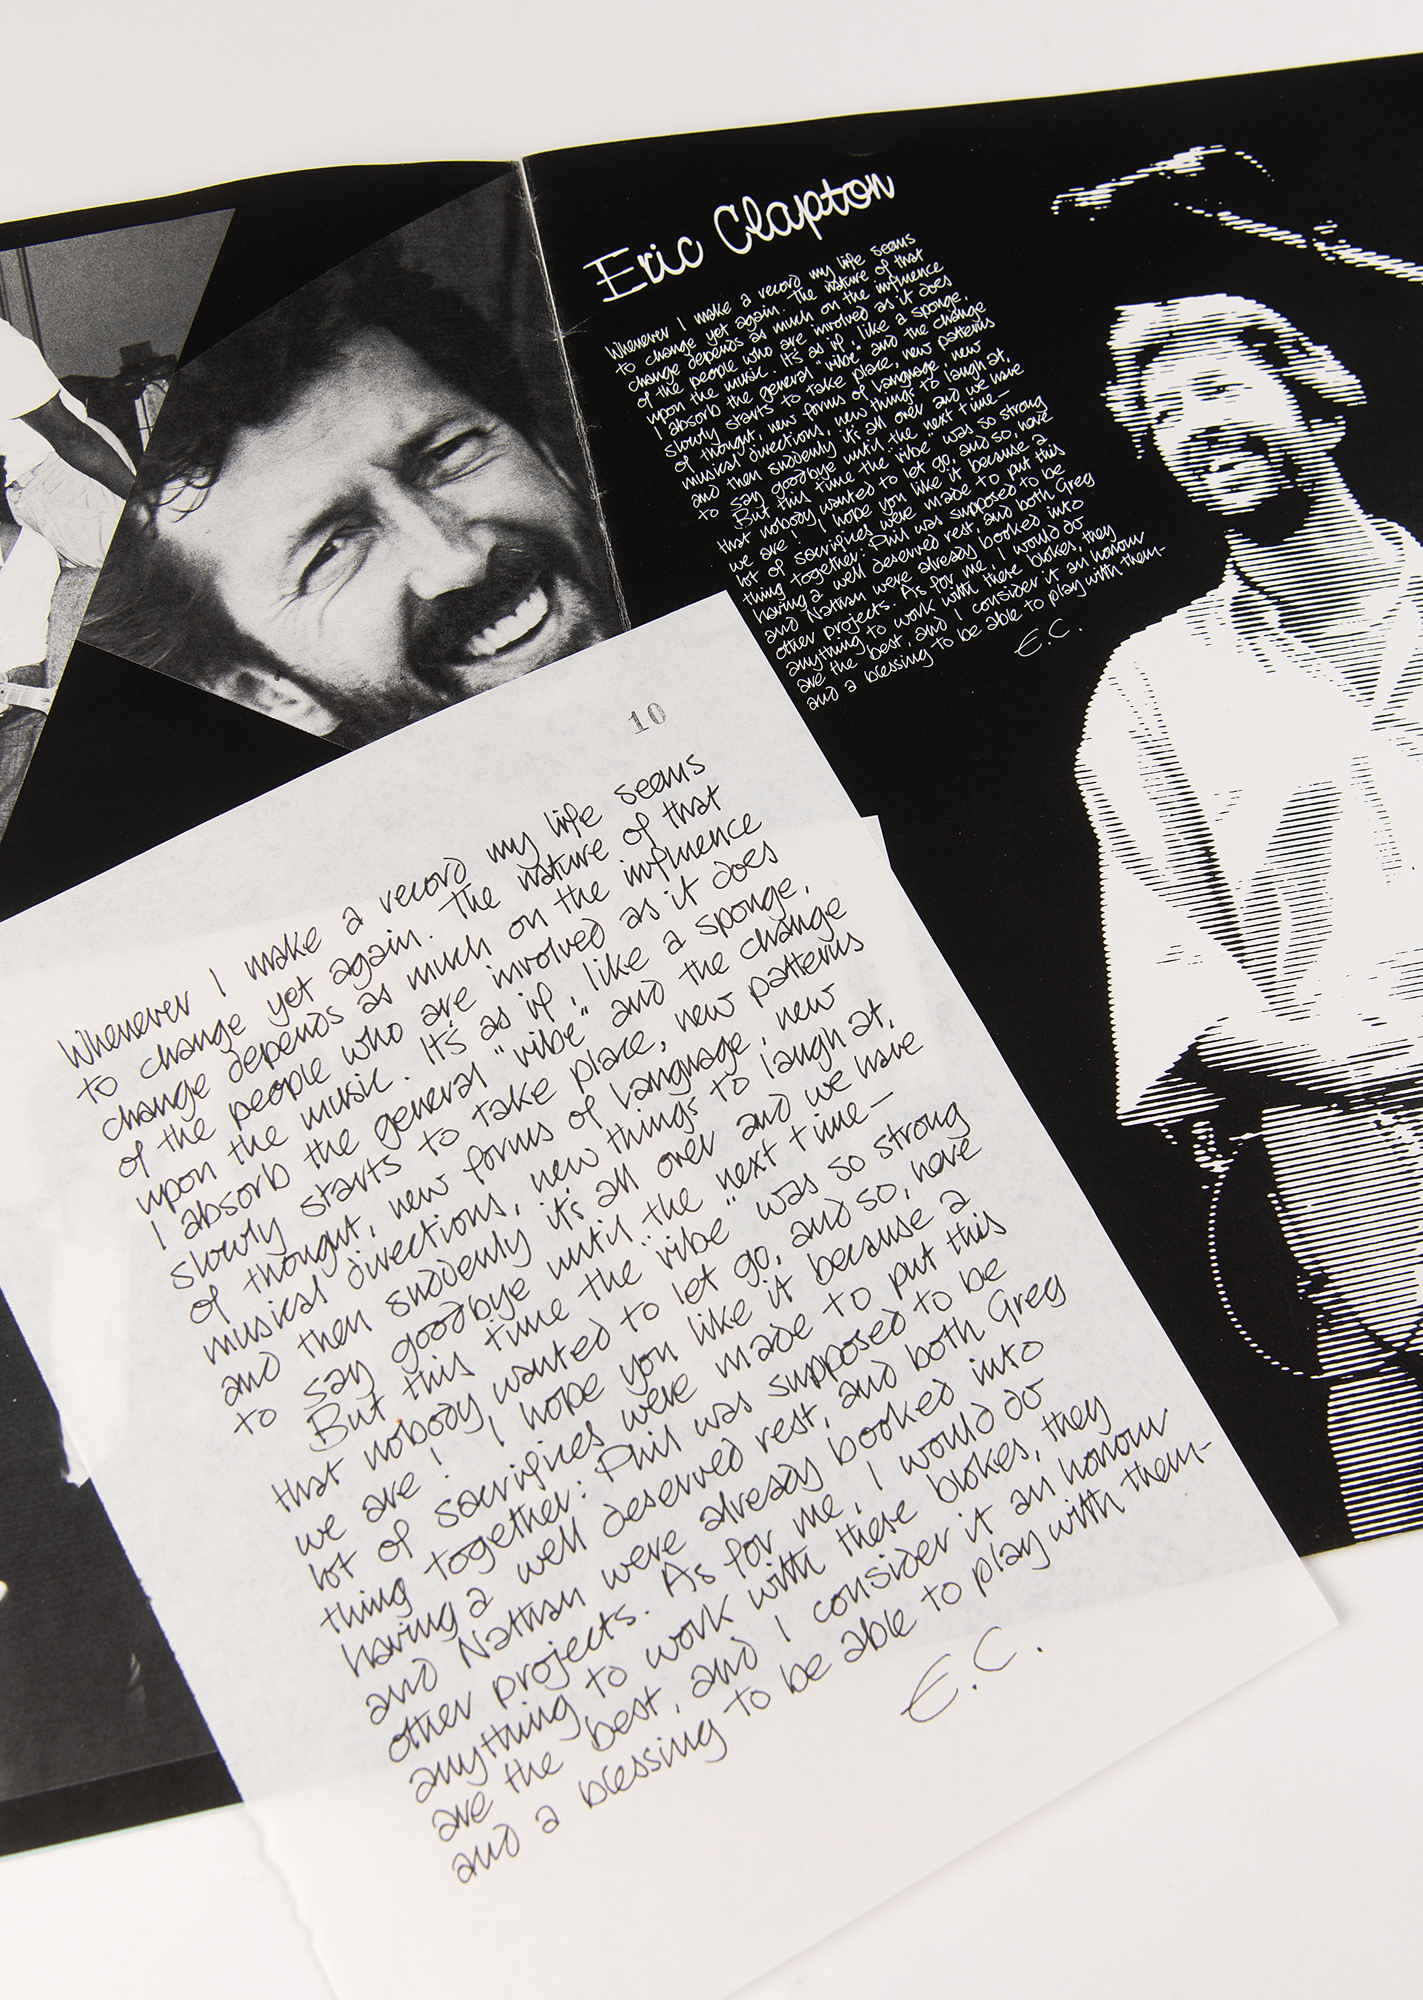 Eric Clapton
Whenever I make a record my life seems
to change yet again. The nature of that
change depends as much on the influence
of the people who are involved as it does
upon the music. It's as if, like a sponge,
I absorb the general "vibe" and the change
slowly starts to take place, new patterns
of thought, new forms of language, new
musical directions, new things to laugh at,
and then suddenly it's all over and we have
to say goodbye until the next time—
But this time the "vibe" was so strong
that nobody wanted to let go, and so, here
we are! I hope you like it because a
lot of sacrifices were made to put this
thing together: Phil was supposed to be
having a well deserved rest, and both Greg
and Nathan were already booked into
other projects. As for me, I would do
anything to work with these blokes, they
are the best, and I consider it an honour
and a blessing to be able to play with them—
E.C.
10
Whenever I make a record my life seems
to change yet again. The nature of that
change depends as much on the influence
of the people who are involved as it does
upon the music. It's as if, like a sponge,
I absorb the general "vibe" and the change
slowly starts to take place, new patterns
of thought, new forms of language, new
musical directions, new things to laugh at,
and then suddenly it's all over and we have
to say goodbye until the next time—
But this time the "vibe" was so strong
that nobody wanted to let go, and so, here
we are! I hope you like it because a
lot of sacrifices were made to put this
thing together: Phil was supposed to be
having a well deserved rest, and both Greg
and Nathan were already booked into
other projects. As for me, I would do
anything to work with these blokes, they
are the best, and I consider it an honour
and a blessing to be able to play with them—
E.C.